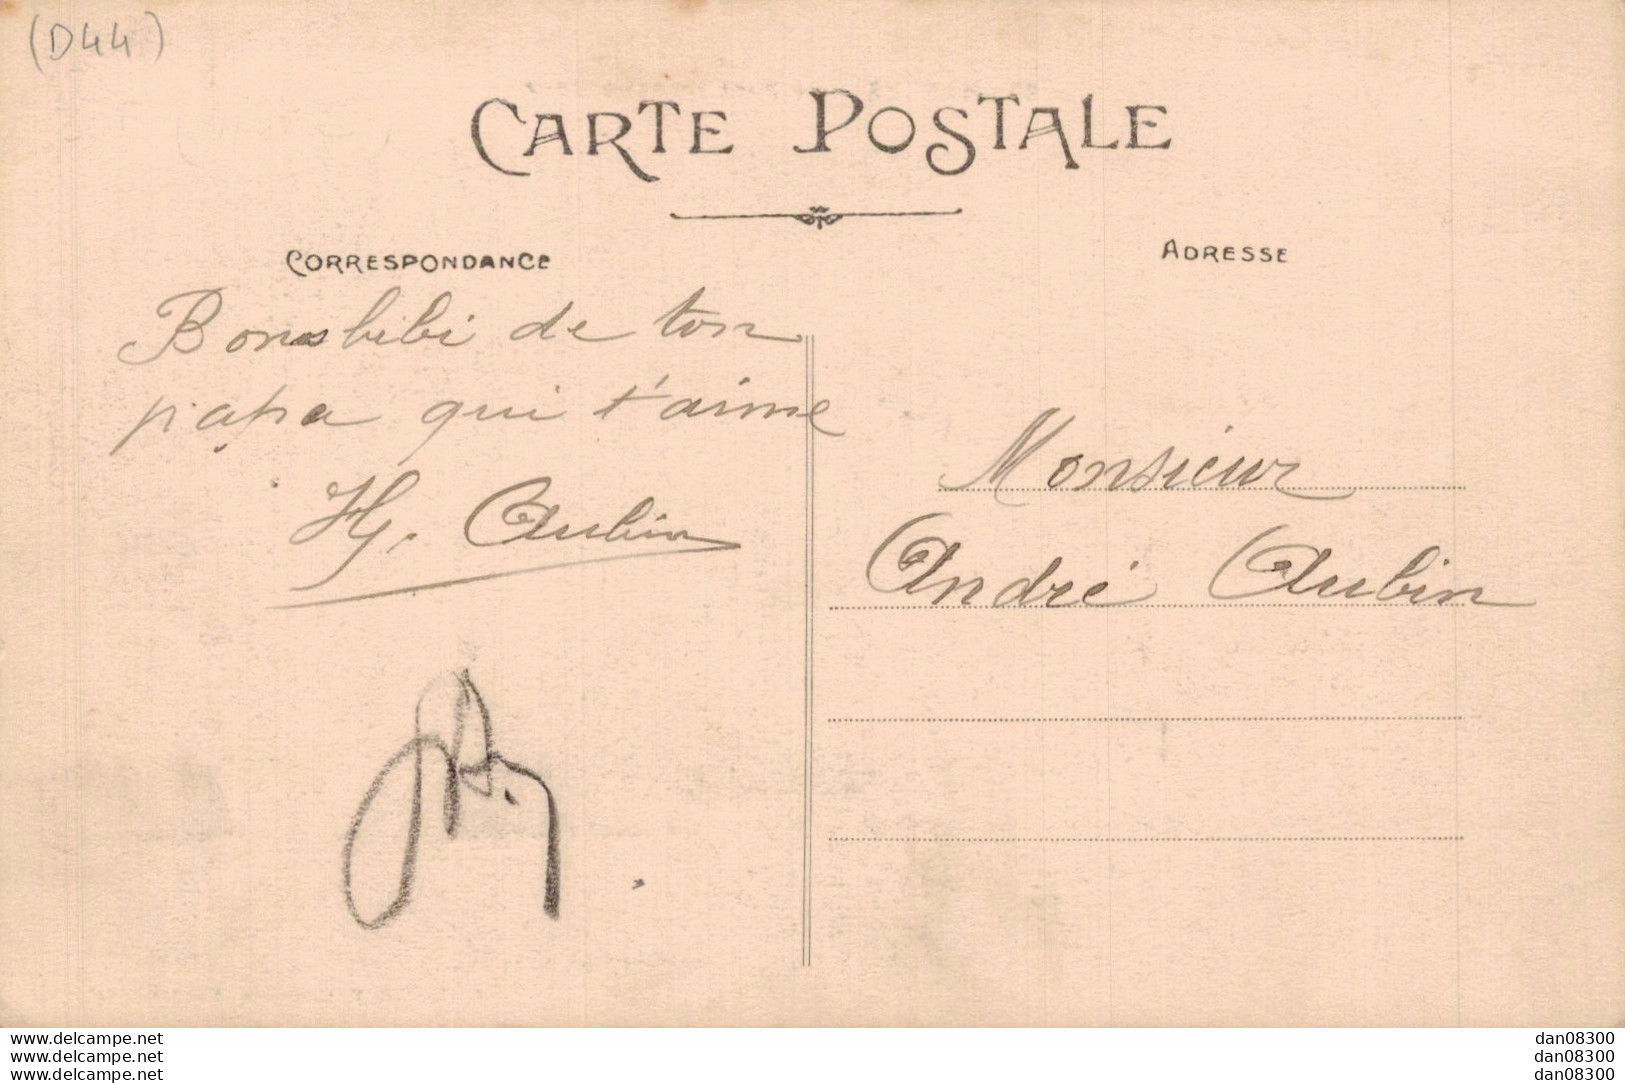 (D44)
CARTE POSTALE
CORRESPONDANCE
ADRESSE
Bons bibi de ton
papa qui t'aime
Hy. Aubin
Monsieur
André Aubin
www.delcampe.net
www.delcampe.net
www.delcampe.net
dan08300
dan08300
dan08300